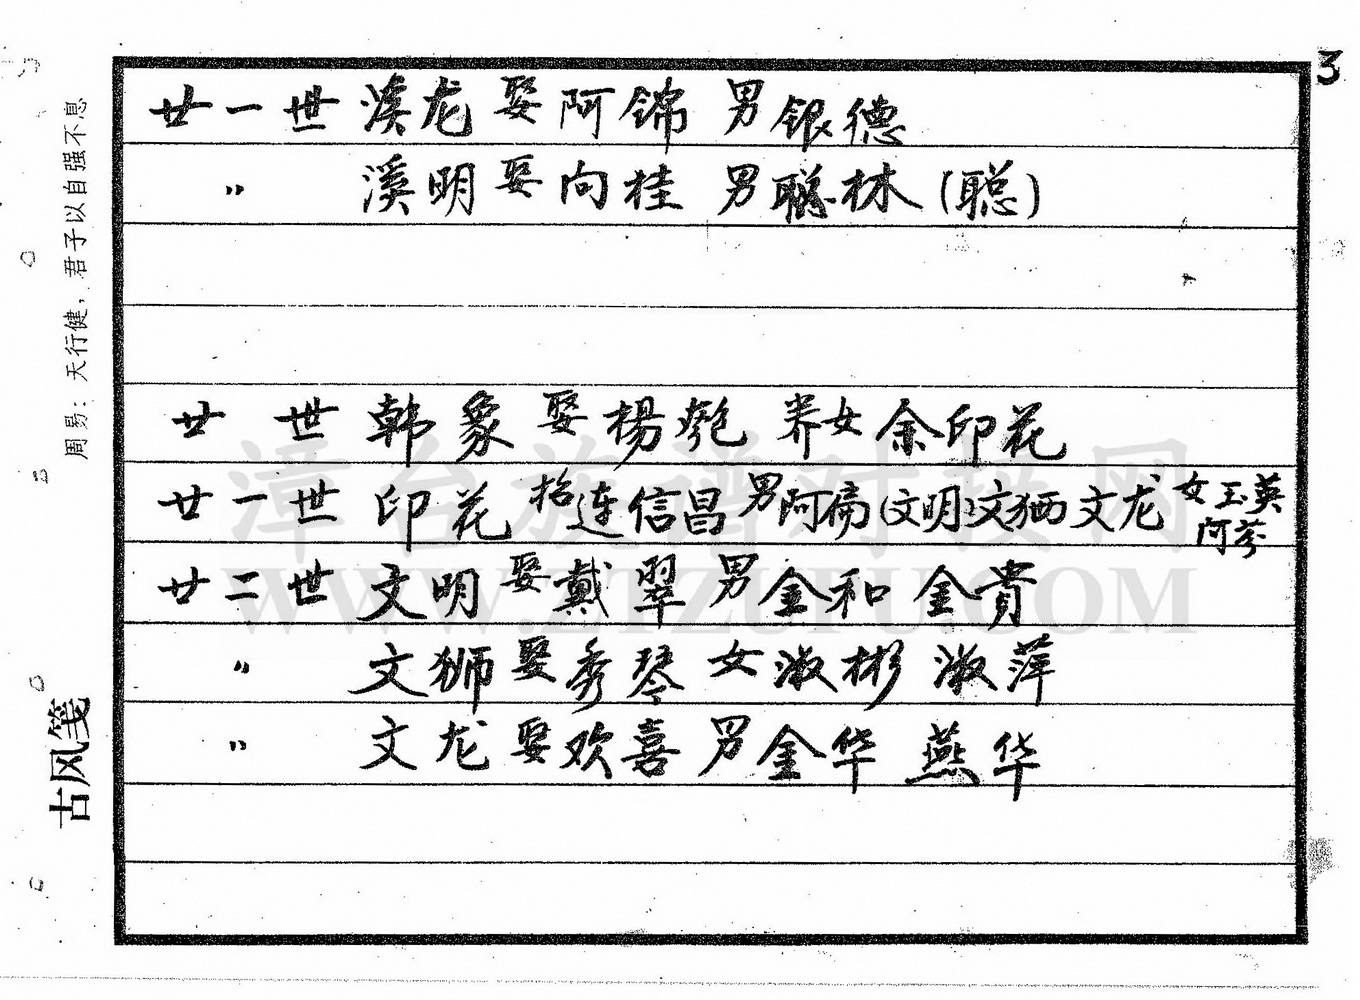 3
廿一世 溪龙 娶 阿锦 男 银德
〃 溪明 娶 向桂 男 聪林(聪)
廿 世 韩象 娶 楊 养女 余印花
廿一世 印花 招 连信昌 男 阿 (文明) 文 文龙 女 玉英 阿芬
廿二世 文明 娶 戴翠 男 金和 金貴
〃 文狮 娶 秀琴 女 淑彬 淑萍
〃 文龙 娶 欢喜 男 金华 燕华
周易：天行健，君子以自强不息
古风笺
漳台族谱对接网
WWW.ZTZUPU.COM